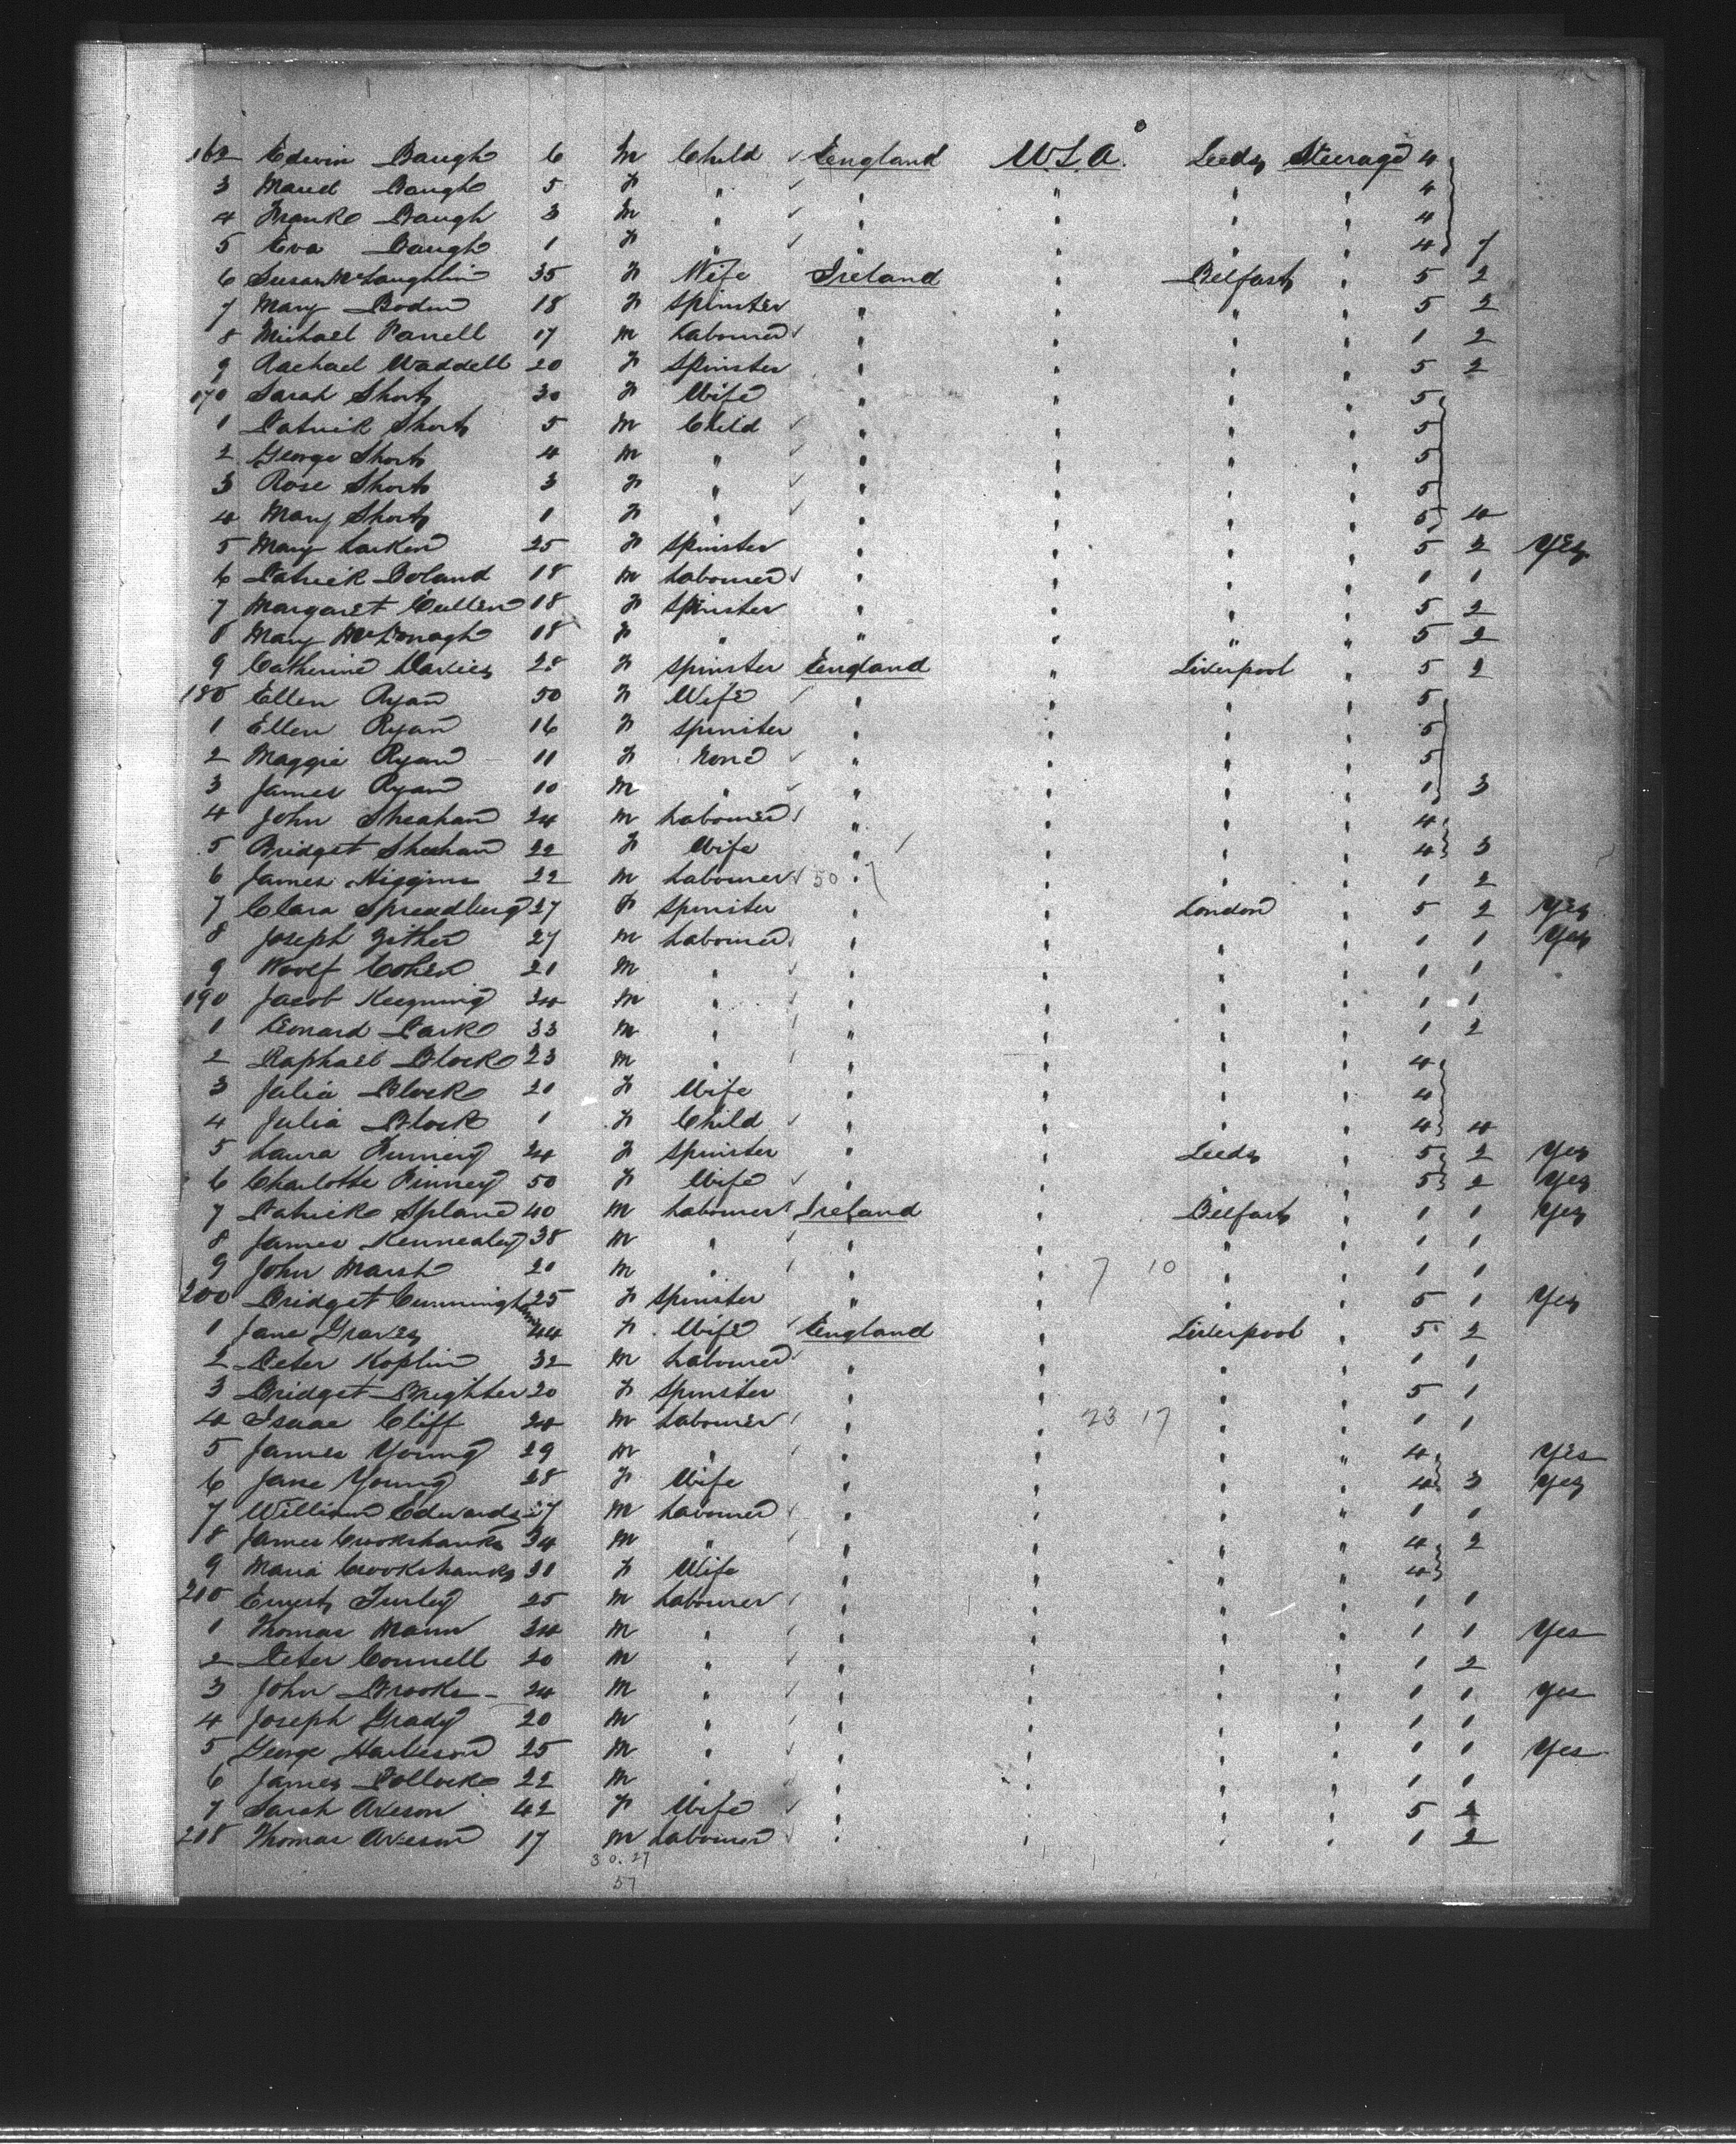 162 Edwin Baugh 6 M Child England U.S.A. Leeds Steerage 4
3 Maud Baugh 5 F " " " " " 4
4 Frank Baugh 3 M " " " " " 4
5 Eva Baugh 1 F " " " " " 4 7
6 Susan McLaughlin 35 F Wife Ireland " Belfast " 5 2
7 Mary Boden 18 F Spinster " " " " 5 2
8 Michael Farrell 17 M Labourer " " " " 1 2
9 Rachael Waddell 20 F Spinster " " " " 5 2
170 Sarah Short 30 F Wife " " " " 5
1 Patrick Short 5 M Child " " " " 5
2 George Short 4 M " " " " " 5
3 Rose Short 3 F " " " " " 5
4 Mary Short 1 F " " " " " 5 4
5 Mary Larken 25 F Spinster " " " " 5 2 Yes
6 Patrick Boland 18 M Labourer " " " " 1 1
7 Margaret Cullen 18 F Spinster " " " " 5 2
8 Mary McDonagh 18 F " " " " " 5 2
9 Catherine Davies 28 F Spinster England " Liverpool " 5 2
180 Ellen Ryan 50 F Wife " " " " 5
1 Ellen Ryan 16 F Spinster " " " " 5
2 Maggie Ryan 11 F None " " " " 5
3 James Ryan 10 M " " " " " 1 3
4 John Sheahan 24 M Labourer " " " " 4
5 Bridget Sheehan 22 F Wife " " " " 4 3
6 James Higgins 22 M Labourer 50 " " " " 1 2
7 Clara Spreadbery 27 F Spinster " " London " 5 2 Yes
8 Joseph 27 M Labourer " " " " 1 1 Yes
9 Woolf Cohen 21 M " " " " " 1 1
190 Jacob 24 M " " " " " 1 1
1 Leonard Park 33 M " " " " " 1 2
2 Raphael Block 23 M " " " " " 4
3 Julia Block 20 F Wife " " " " 4
4 Julia Block 1 F Child " " " " 4 4
5 Laura 24 F Spinster " " Leeds " 5 2 Yes
6 Charlotte Pinney 50 F Wife " " " " 5 2 Yes
7 Patrick Splane 40 M Labourer Ireland " Belfast " 1 1 Yes
8 James Kennealey 38 M " " " " " 1 1
9 John Marsh 20 M " " " 7 10 " " 1 1
200 Bridget Cunningham 25 F Spinster " " " " 5 1 Yes
1 Jane Graves 44 F Wife England " Liverpool " 5 2
2 Peter Koplin 32 M Labourer " " " " 1 1
3 Bridget Brighter 20 F Spinster " " " " 5 1
4 Isaac Cliff 24 M Labourer " " 23 17 " " 1 1
5 James Young 29 M " " " " " 4 Yes
6 Jane Young 28 F Wife " " " " 4 3 Yes
7 William Edwards 27 M Labourer " " " " 1 1
8 James Crookshanks 34 M " " " " " 4 2
9 Maria Crookshanks 31 F Wife " " " " 4
210 Ernest Turley 25 M Labourer " " " " 1 1
1 Thomas Mann 24 M " " " " " 1 1 Yes
2 Peter Connell 20 M " " " " " 1 2
3 John Brooks 24 M " " " " " 1 1 Yes
4 Joseph Grady 20 M " " " " " 1 1
5 George Harbeson 25 M " " " " " 1 1 Yes
6 James Pollock 22 M " " " " " 1 1
7 Sarah Aveson 42 F Wife " " " " 5 2
218 Thomas Aveson 17 M Labourer " " " " 1 2
30.27
57